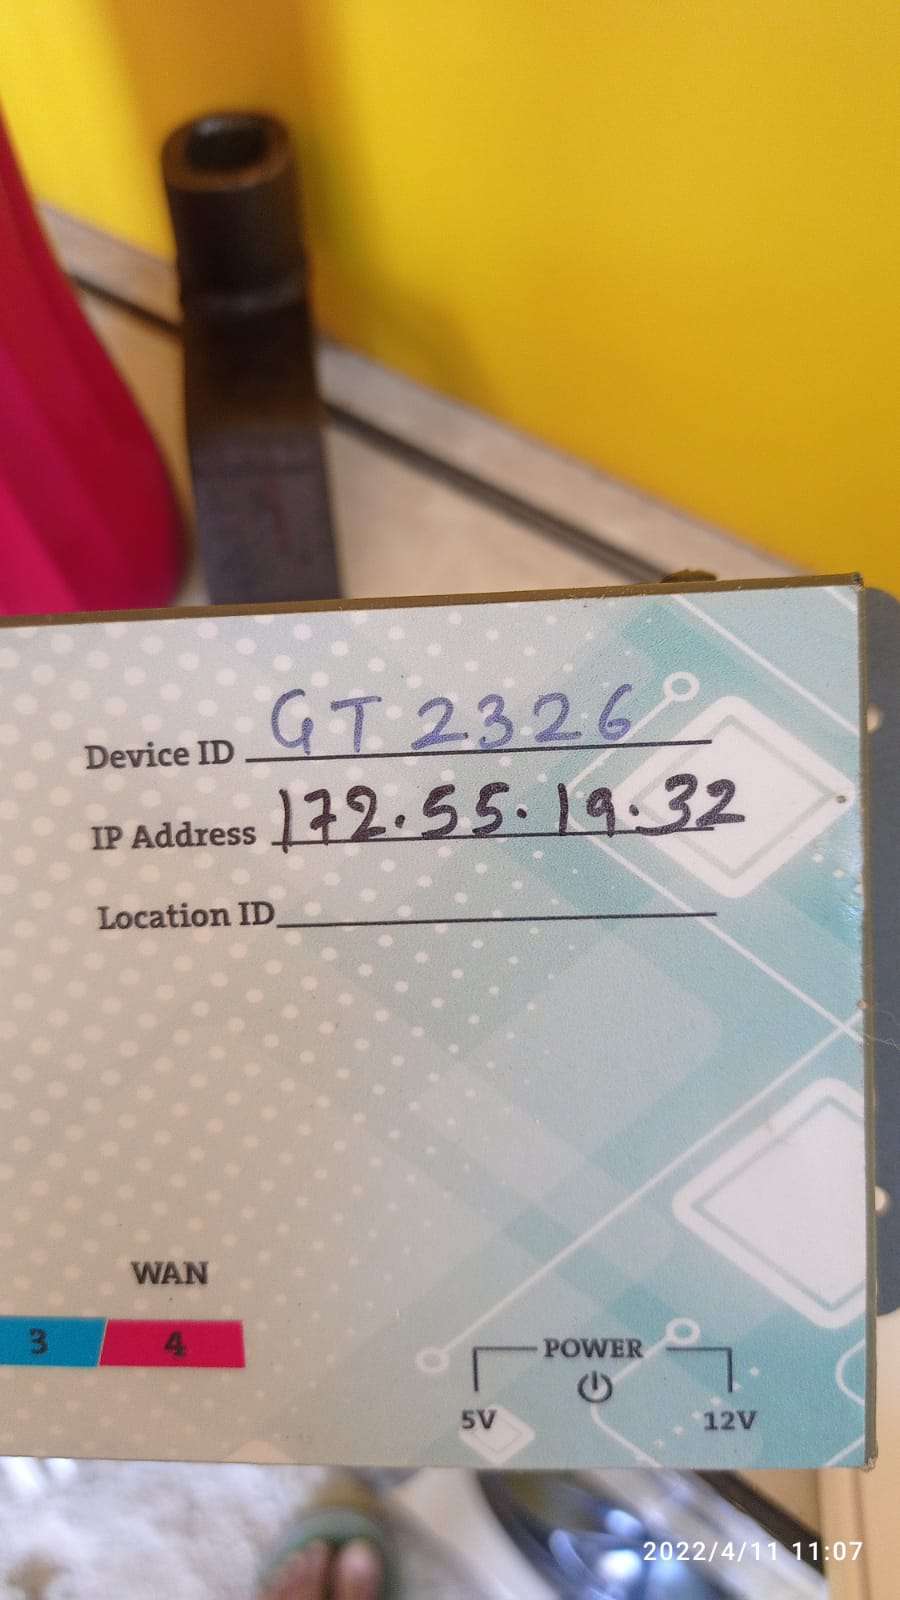 Device ID GT 2326
IP Address 172.55.19.32
Location ID
WAN
3 4
POWER
5V 12V
2022/4/11 11:07